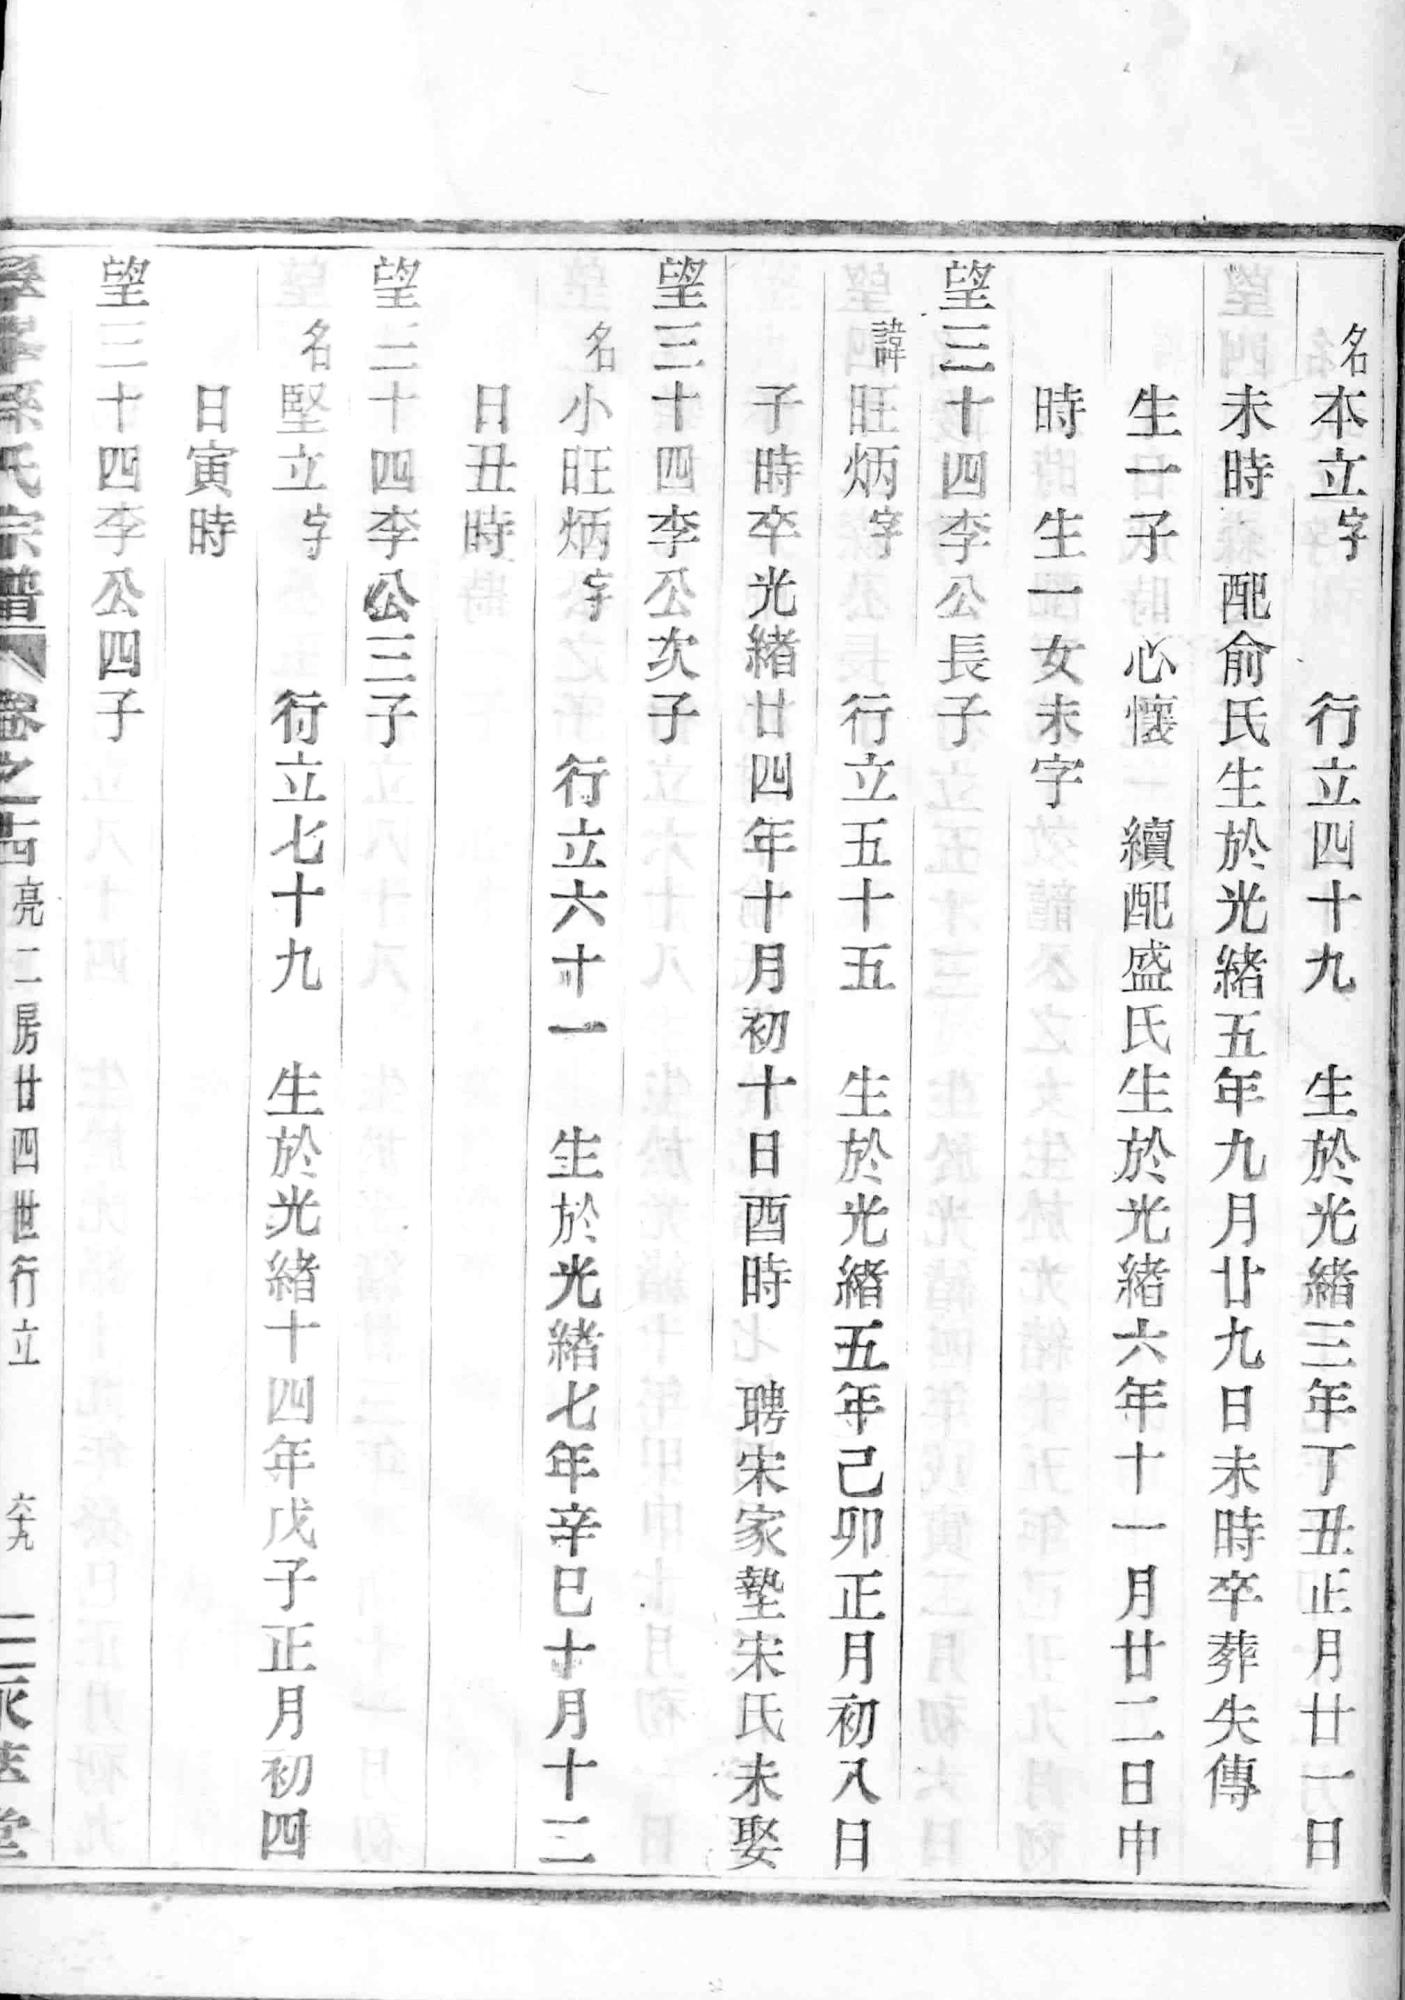 名本立字 行立四十九 生於光緒三年丁丑正月廿一日
未時 配俞氏生於光緒五年九月廿九日未時卒葬失傳
生一子 心懷 續配盛氏生於光緒六年十一月廿二日申
時 生一女未字
望三十四李公長子
諱旺炳字 行立五十五 生於光緒五年己卯正月初八日
子時卒光緒廿四年十月初十日酉時 聘宋家墊宋氏未娶
望三十四李公次子
名小旺炳字 行立六十一 生於光緒七年辛巳十月十二
日丑時
望三十四李公三子
名堅立字 行立七十九 生於光緒十四年戊子正月初四
日寅時
望三十四李公四子
孫氏宗譜 卷之十四 亮二房廿四世行立 六十九 堂